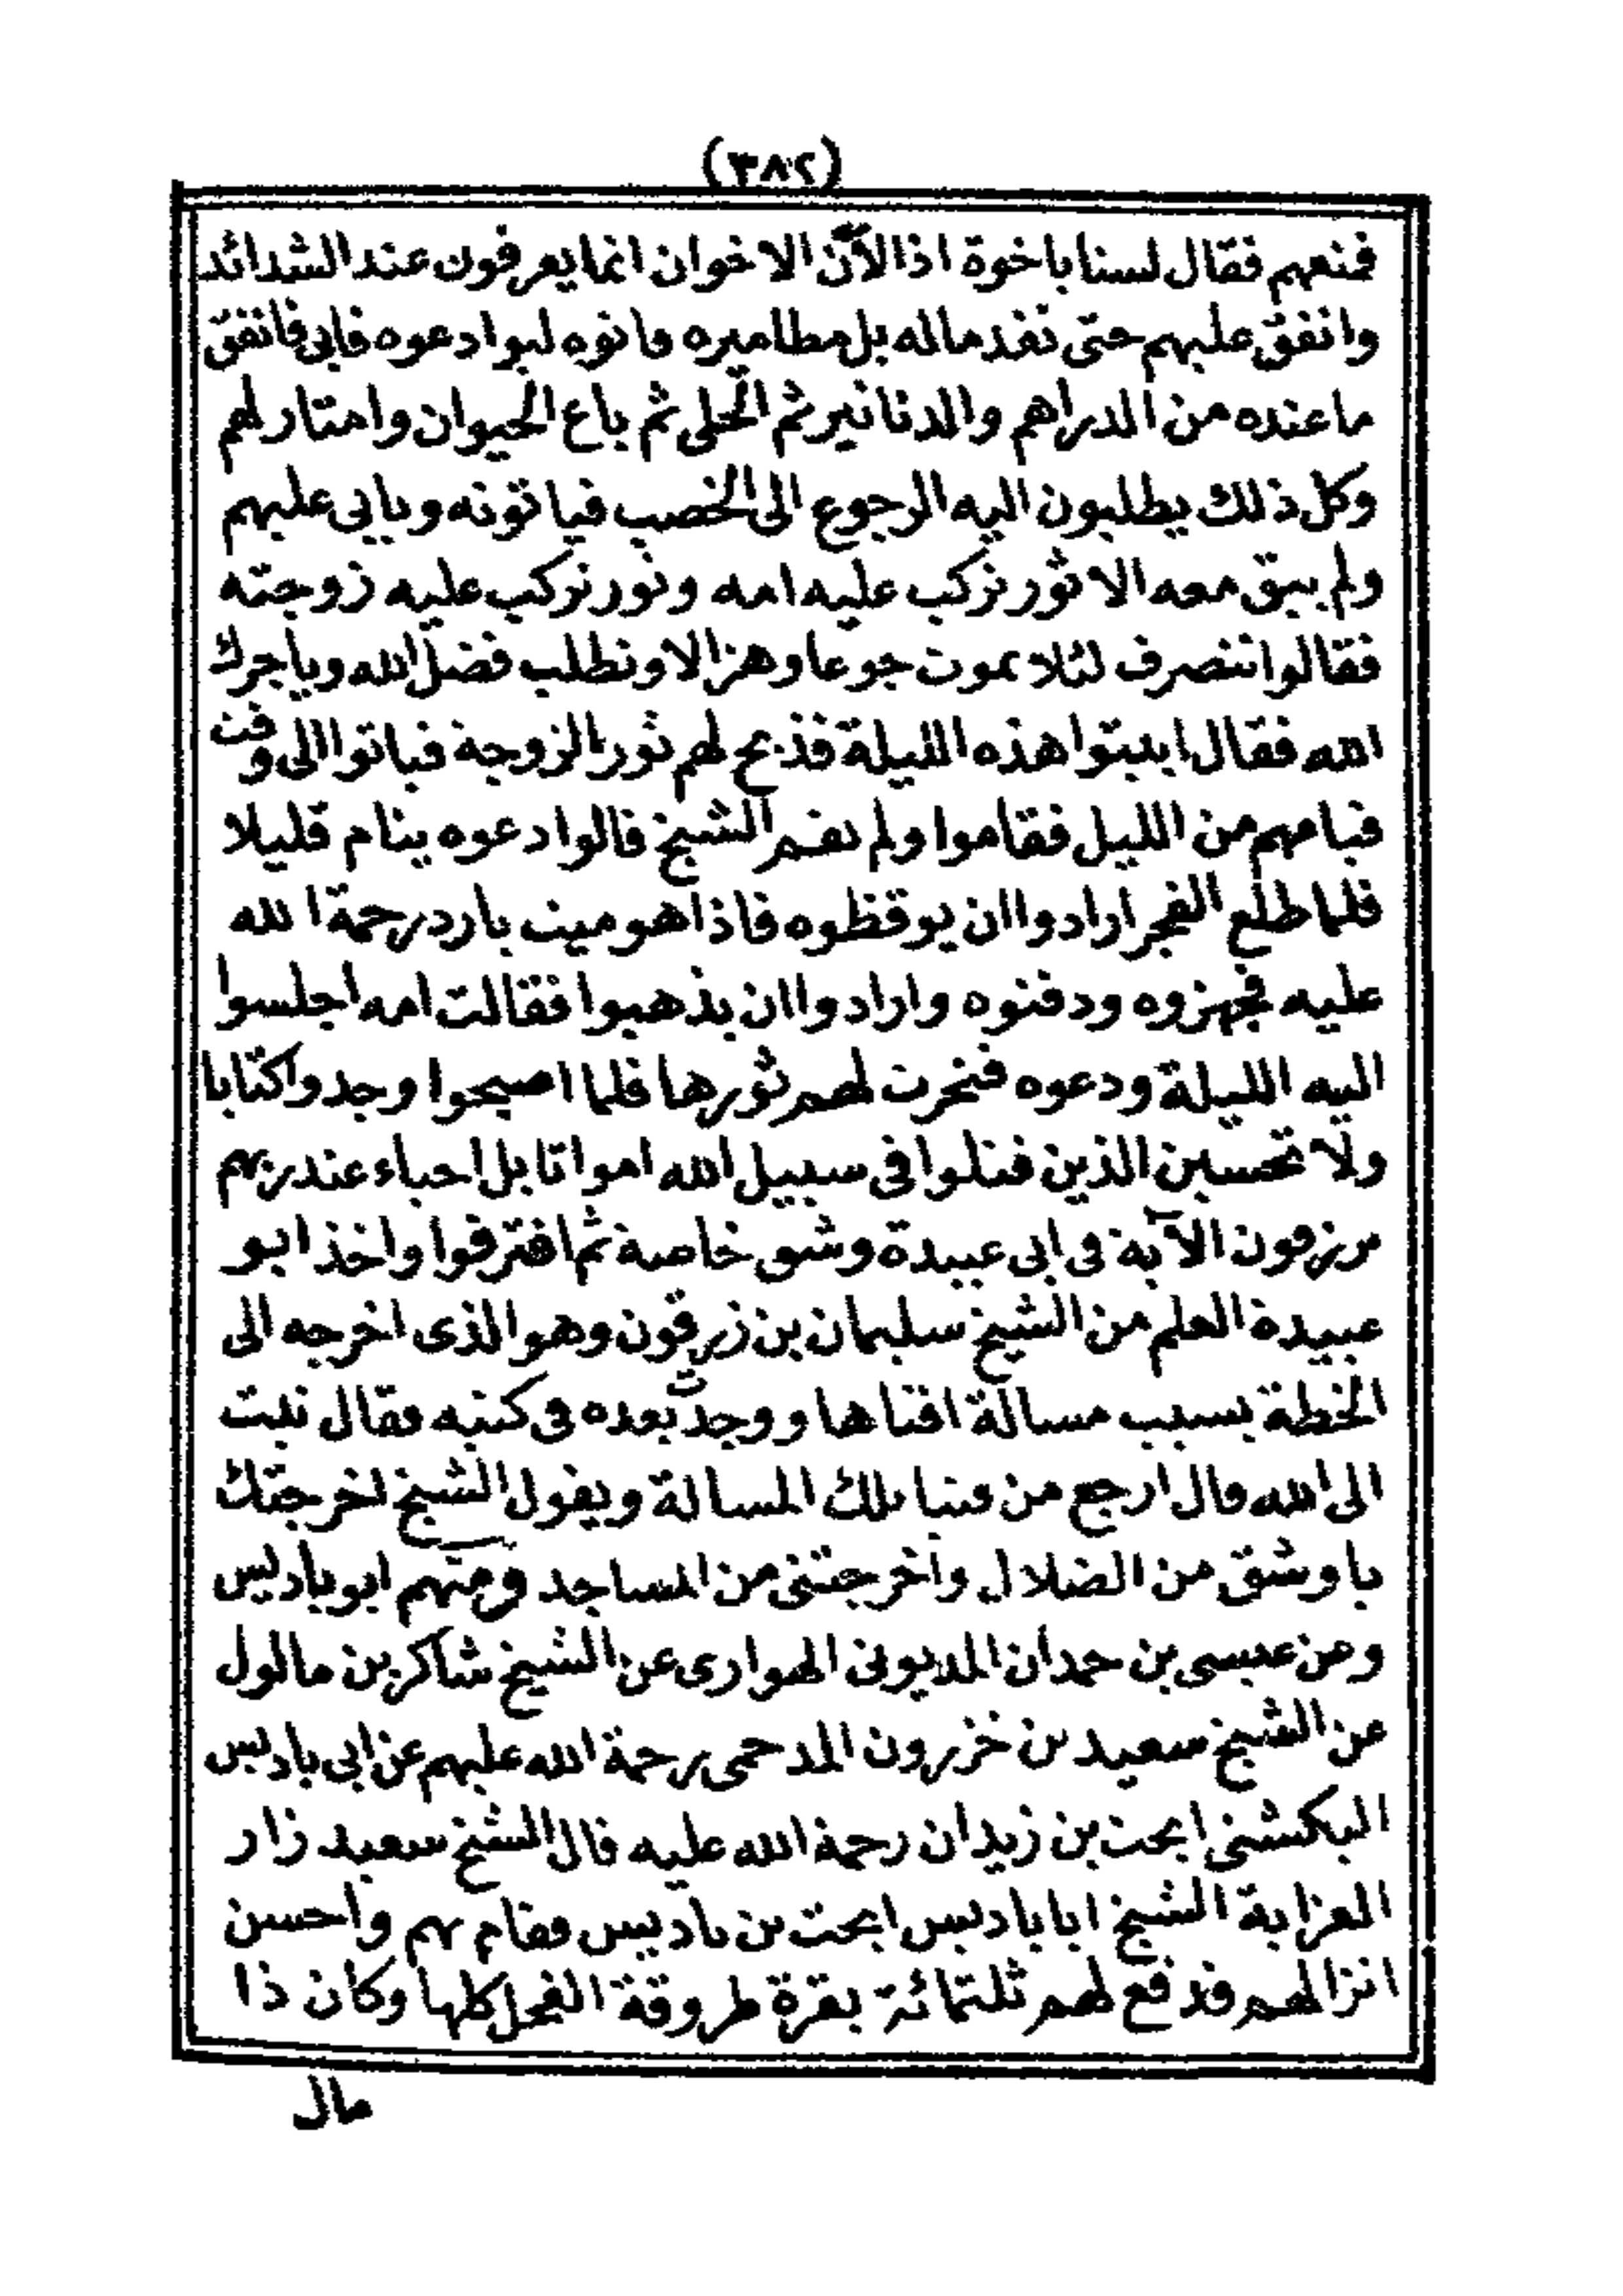 (٣٨٢)
فمنعهم فقال لسنا باخوة اذا الآن الاخوان انما يعرفون عند الشدائد
وانفق عليهم حتى نفد ماله بل مطاميره فاتوه ليوادعوه فابى فانفق
ما عنده من الدراهم والدنانير ثم الحلى ثم باع الحيوان وامتار لهم
وكل ذلك يطلبون اليه الرجوع الى الخصب فياتونه ويابى عليهم
ولم يبق معه الا ثور تركب عليه امه وثور تركب عليه زوجته
فقالوا ننصرف لئلا نموت جوعا وهزالا ونطلب فضل الله وياجرك
الله فقال ابيتوا هذه الليلة فذبح لهم ثور الزوجة فباتوا الى وقت
قيامهم من الليل فقاموا ولم يقم الشيخ قالوا دعوه ينام قليلا
فلما طلع الفجر ارادوا ان يوقظوه فاذا هو ميت بارد رحمة الله
عليه فجهزوه ودفنوه وارادوا ان يذهبوا فقالت امه اجلسوا
اليه الليلة ودعوه فنحرت لهم ثورها فلما اصبحوا وجدوا كتابا
ولا تحسبن الذين قتلوا فى سبيل الله امواتا بل احياء عند ربهم
يرزقون الآية فى ابى عبيدة وشق خاصة ثم افترقوا واخذ ابو
عبيدة العلم من الشيخ سليمان بن زرقون وهو الذى اخرجه الى
الخطة بسبب مسالة افتاها ووجدت بعده فى كتبه فقال تبت
الى الله قال ارجع من فتيا تلك المسالة ويقول الشيخ اخرجتك
يا وشق من الضلال واخرجتنى من المساجد ومنهم ابو باديس
ومن عيسى بن حمدان المديونى الهوارى عن الشيخ شاكر بن مالول
عن الشيخ سعيد بن خزرون المدحمى رحمة الله عليهم عن ابى باديس
البكشنى ابحت بن زيدان رحمة الله عليه قال الشيخ سعيد زار
العزابة الشيخ ابا باديس ابحت بن باديس فقام بهم واحسن
انزالهم فدفع لهم ثلثمائة بقرة طروقة الفحل كلها وكان ذا
مال